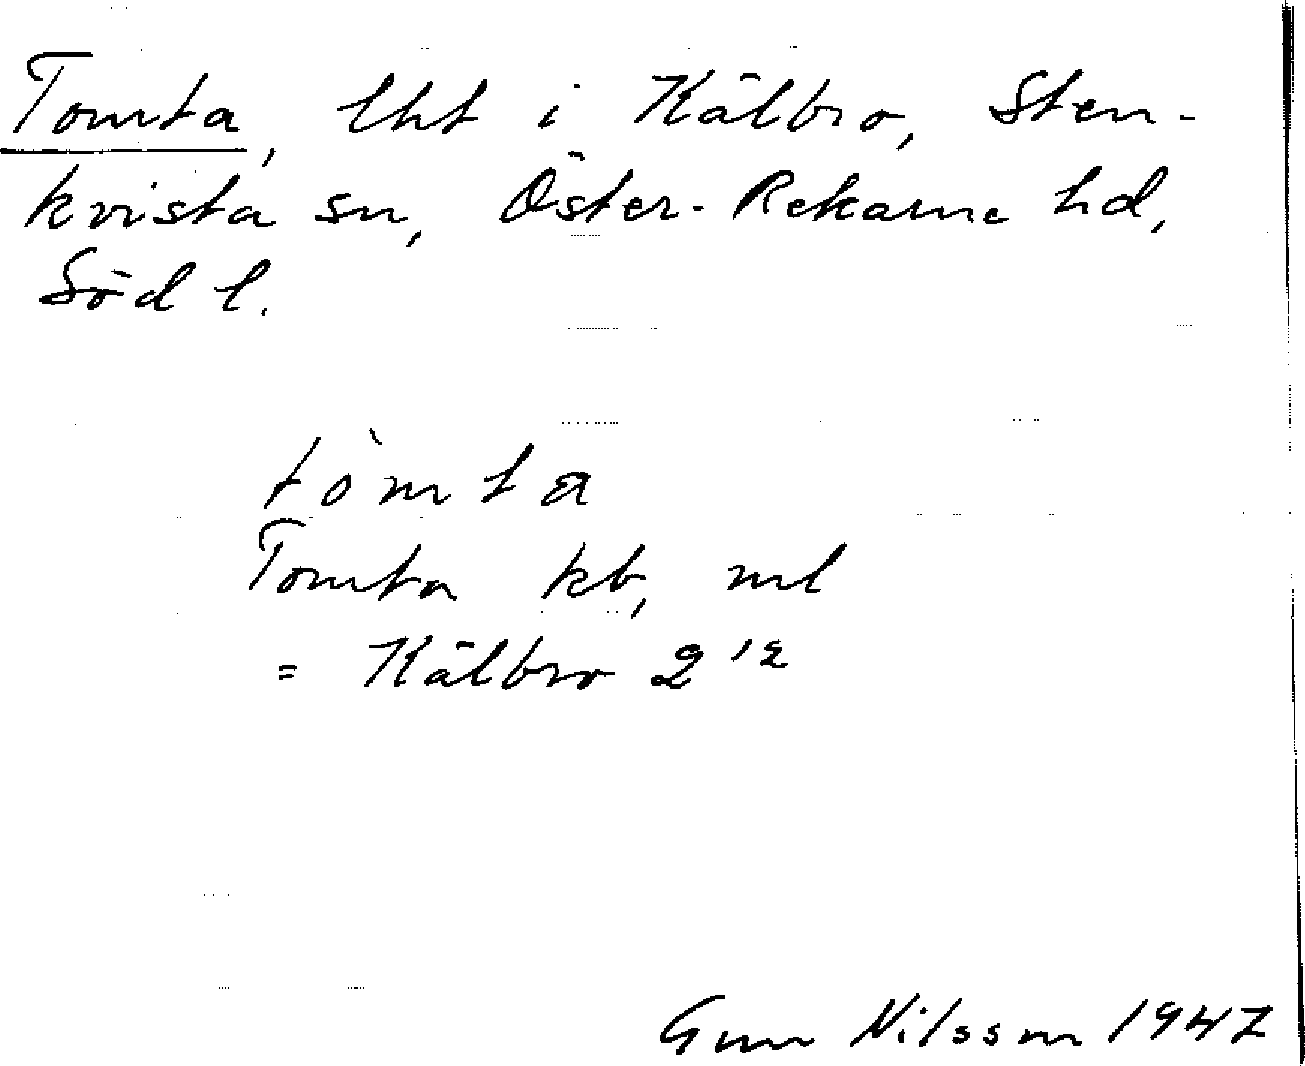 Tomta, lht i Kälbro, Sten-
kvista sn, Öster-Rekarne hd,
Söd l.
tòmta
Tomta kb, ml
= Kälbro 2¹²
Gun Nilsson 1947